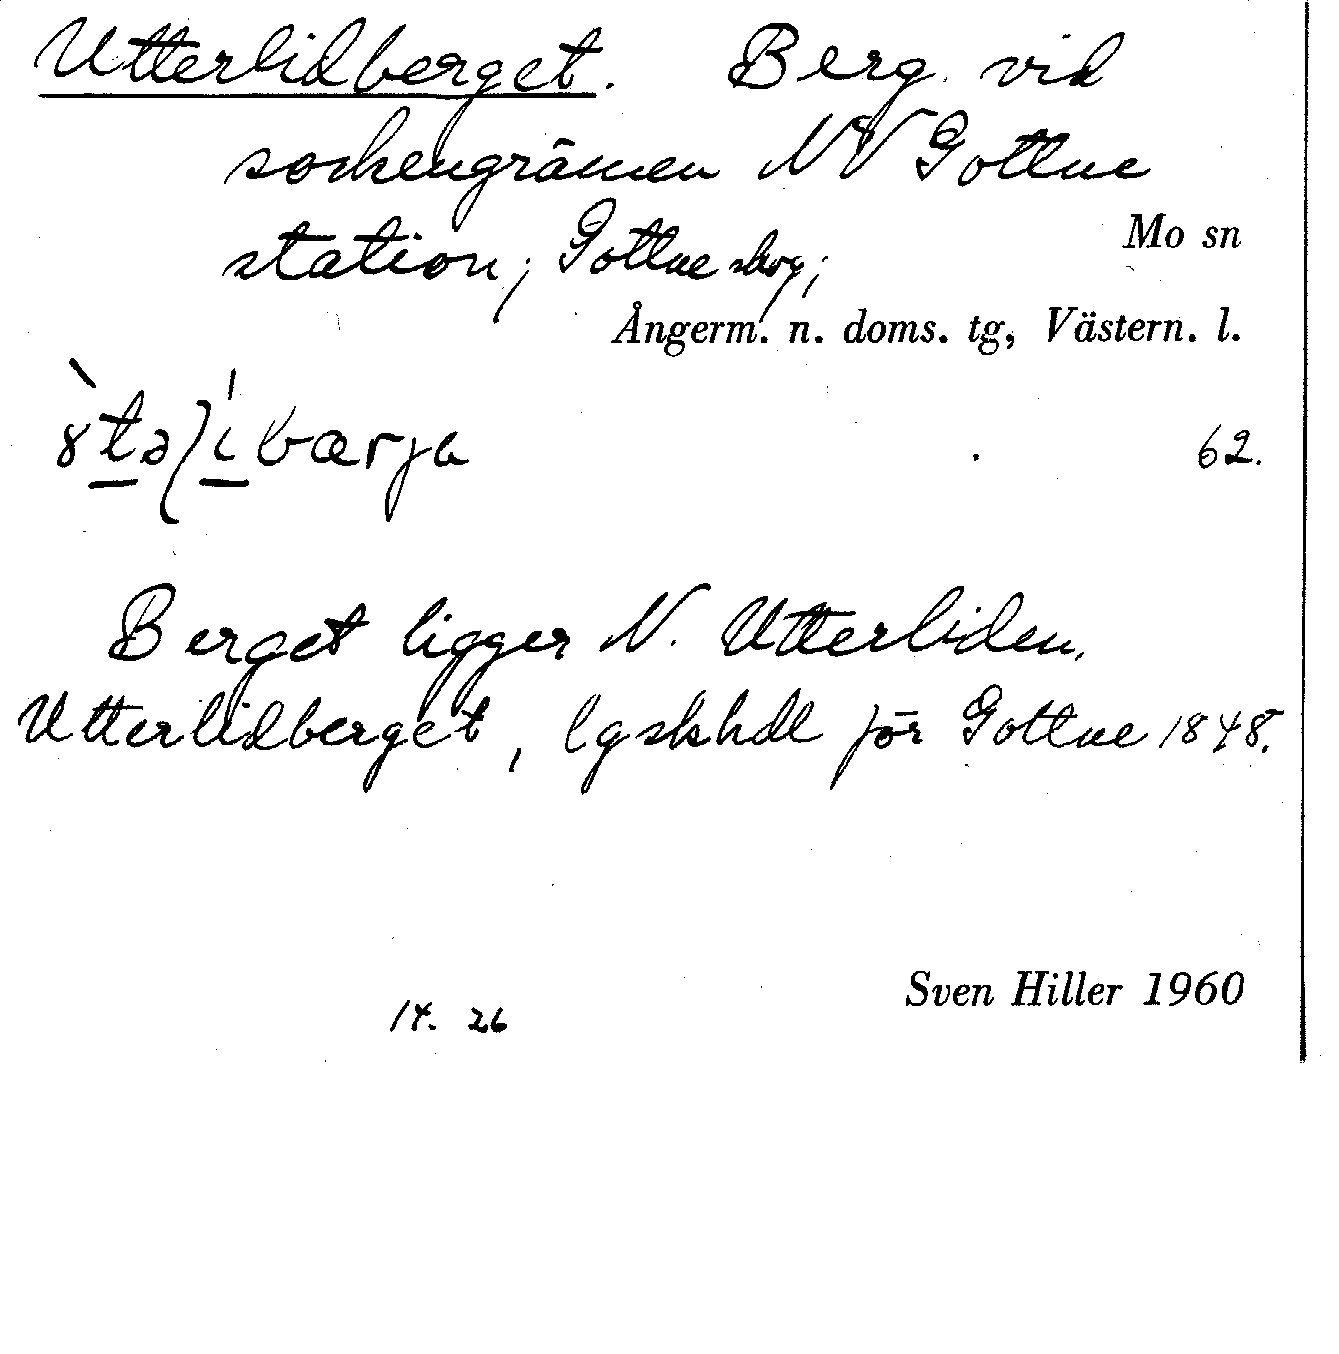 Utterlidberget. Berg vid
sockengränsen NV Gottne
station; Gottne skog;
Mo sn
Ångerm. n. doms. tg, Västern. l.
62.
Berget ligger N. Utterliden.
Utterlidberget, lgskhdl för Gottne 1848.
Sven Hiller 1960
14. 26